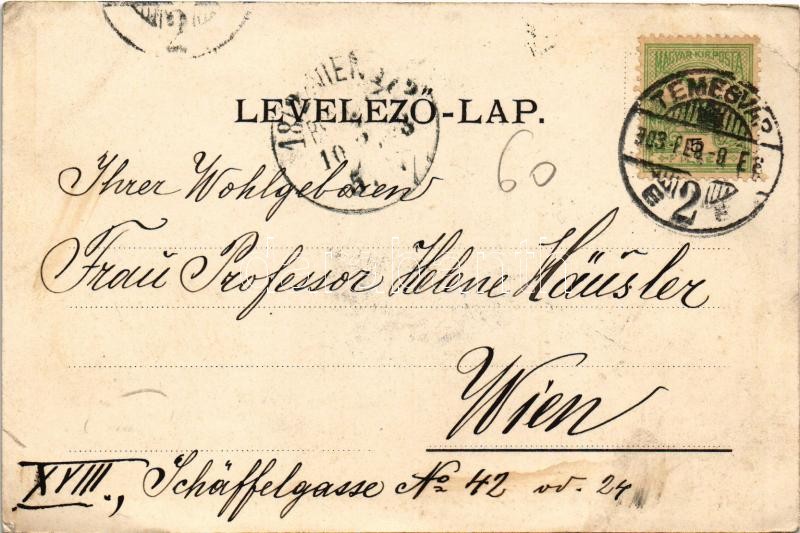 2
MAGYAR·KIR·POSTA
LEVELEZŐ-LAP.
TEMESVÁR
903 FEB 8
2
60
Ihrer Wohlgeboren
Frau Professor Helene Häusler
Wien
XVIII., Schäffelgasse No 42 od. 24